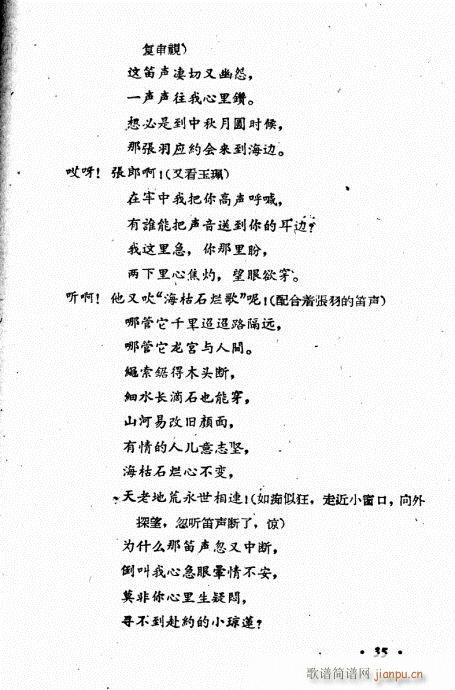 复审視)
这笛声凄切又幽怨，
一声声往我心里鑽。
想必是到中秋月圓时候，
那張羽应約会来到海边。
哎呀！張郎啊！(又看玉珮)
在牢中我把你高声呼喊，
有誰能把声音送到你的耳边？
我这里急，你那里盼，
两下里心焦灼，望眼欲穿。
听啊！他又吹“海枯石烂歌”呢！(配合着張羽的笛声)
哪管它千里迢迢路隔远，
哪管它龙宫与人間。
繩索鋸得木头断，
細水长滴石也能穿，
山河易改旧顏面，
有情的人儿意志坚，
海枯石烂心不变，
天老地荒永世相連！(如痴似狂，走近小窗口，向外
探望，忽听笛声断了，惊)
为什么那笛声忽又中断，
倒叫我心急眼暈情不安，
莫非你心里生疑問，
寻不到赴約的小瓊蓮？
• 35 •
歌谱简谱网
jianpu.cn